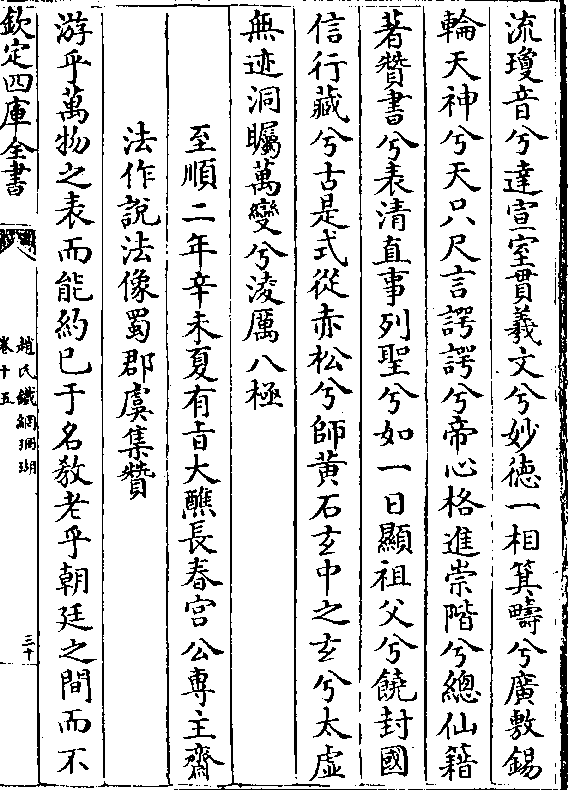 流瓊音兮達宣室貫羲文兮妙徳一相箕疇兮廣敷錫
輪天神兮天只尺言諤諤兮帝心格進崇階兮總仙籍
著贊書兮表清直事列聖兮如一日顯祖父兮饒封國
信行藏兮古是式從赤松兮師黄石玄中之玄兮太虚
無迹洞矚萬變兮淩厲八極
至順二年辛未夏有㫖大醮長春宫公專主齋
法作說法像蜀郡虞集贊
游乎萬物之表而能約已于名教老乎朝廷之間而不
欽定四庫全書
趙氏鐵網珊瑚
卷十五
三十